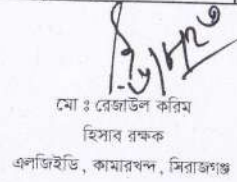 মো ঃ রেজাউল করিম
হিসাব রক্ষক
এলজিইডি, কামারখন্দ, সিরাজগঞ্জ